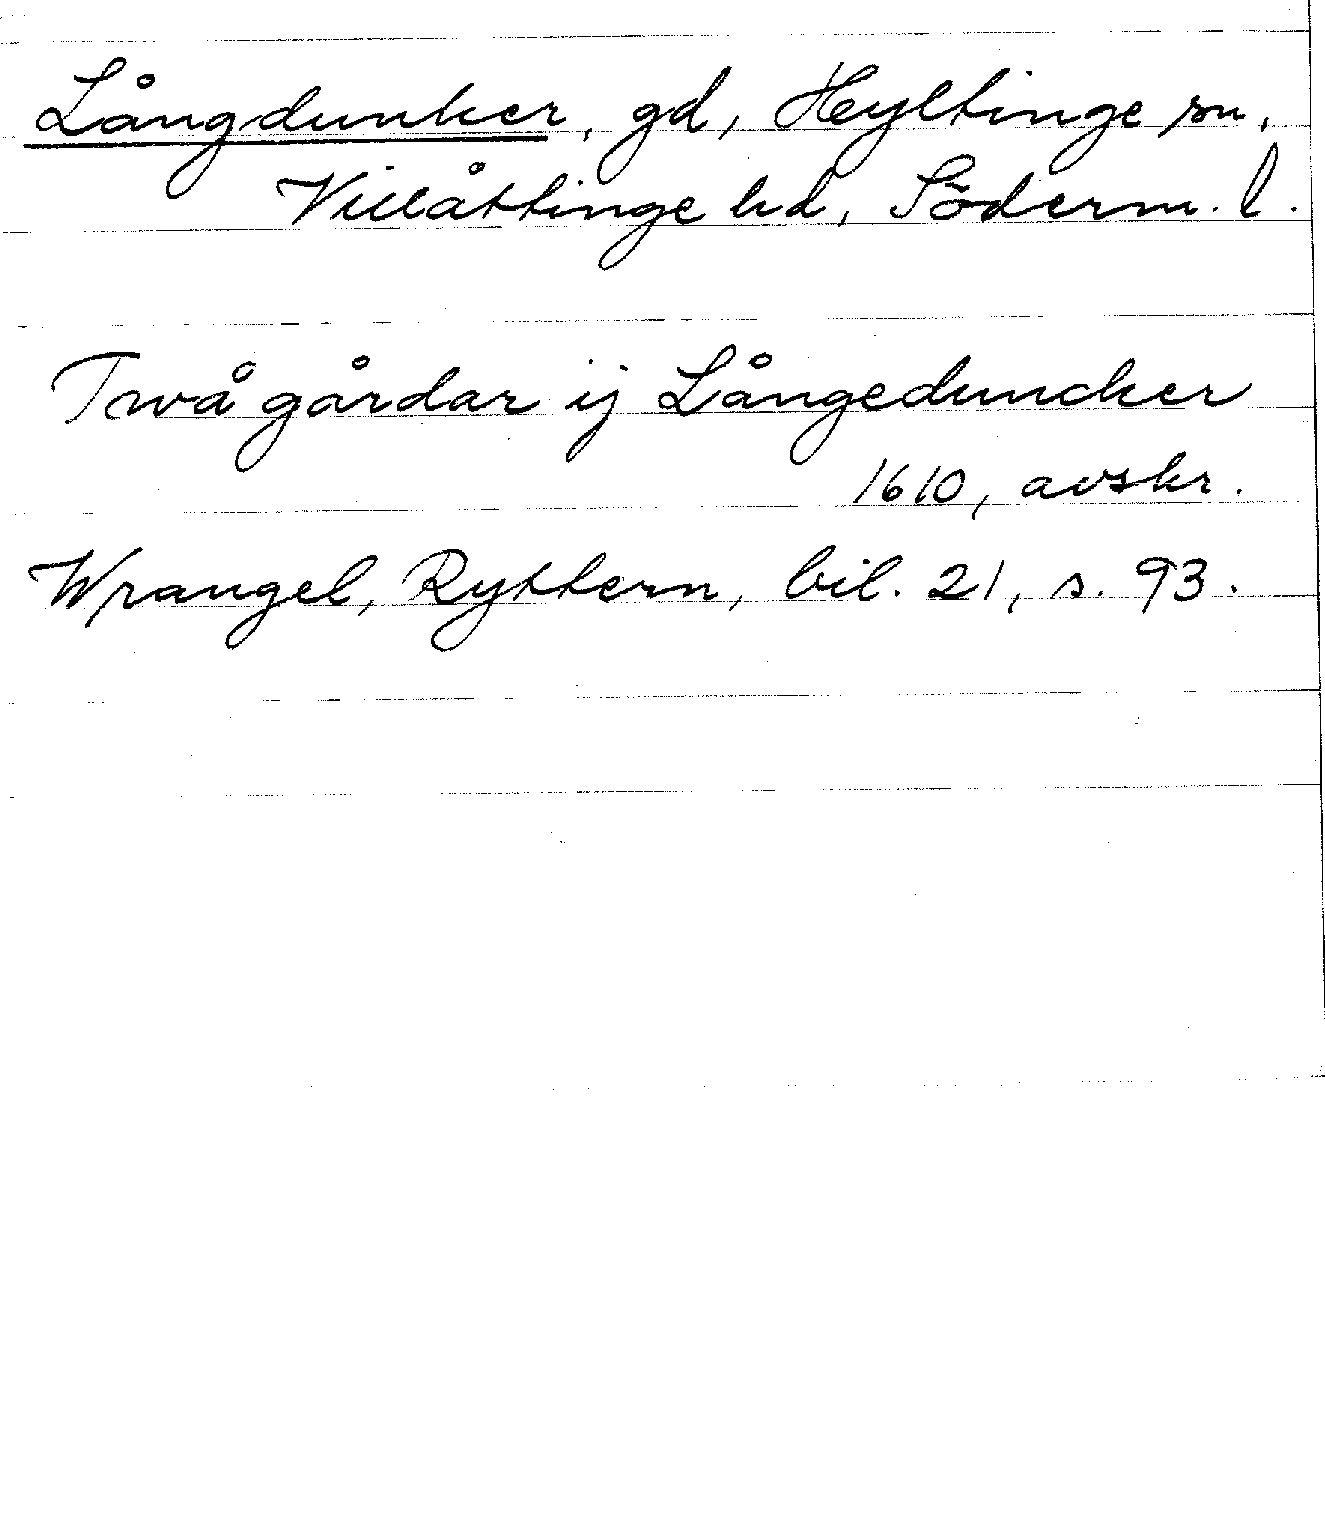 Långdunker, gd, Heyltinge sn,
Villåttinge hd, Söderm. l.
Twå gårdar ij Långeduncker
1610, avskr.
Wrangel, Ryttern, bil. 21, s. 93.